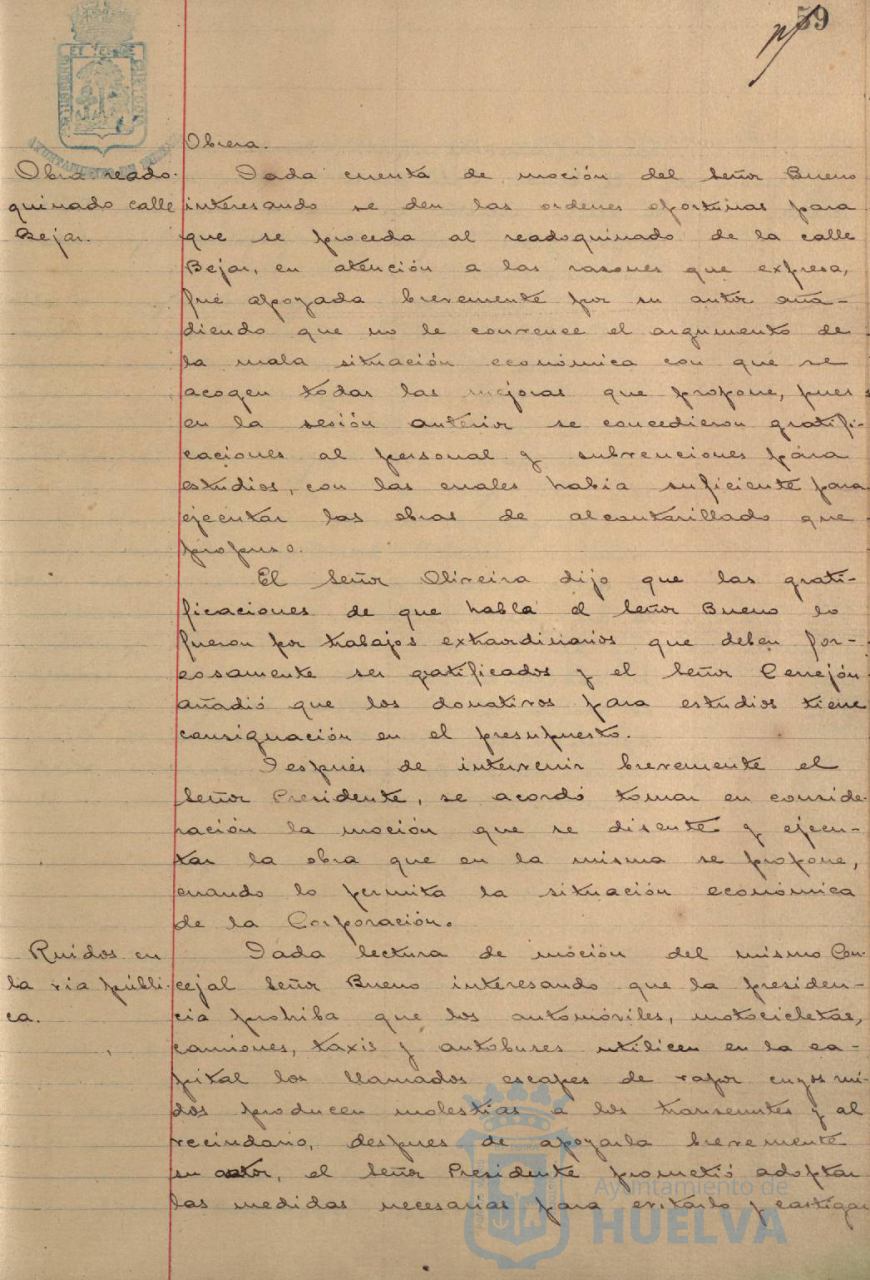 59
Obrera.
Obra readoquinado calle Bejar.
Dada cuenta de moción del Señor Bueno
interesando se den las ordenes oportunas para
que se proceda al readoquinado de la calle
Bejar, en atención a las razones que expresa,
fué apoyada brevemente por su autor aña-
diendo que no le convence el argumento de
la mala situación económica con que se
acogen todas las mejoras que propone, pues
en la sesión anterior se concedieron gratifi-
caciones al personal y subvenciones para
estudios, con las cuales habia suficiente para
ejecutar las obras de alcantarillado que
propuso.
El Señor Oliveira dijo que las grati-
ficaciones de que habla el Señor Bueno lo
fueron por trabajos extraordinarios que deben for-
zosamente ser gratificados y el Señor Cerrejón
añadió que los donativos para estudios tiene
consignación en el presupuesto.
Después de intervenir brevemente el
Señor Presidente, se acordó tomar en conside-
ración la moción que se discute y ejecu-
tar la obra que en la misma se propone,
cuando lo permita la situación económica
de la Corporación.
Ruidos en
la via públi-
ca.
Dada lectura de moción del mismo Con-
cejal Señor Bueno interesando que la presiden-
cia prohiba que los automóviles, motocicletas,
camiones, taxis y autobuses utilicen en la ca-
pital los llamados escapes de vapor cuyos rui-
dos producen molestias a los transeuntes y al
vecindario, despues de apoyarla brevemente
su autor, el Señor Presidente prometió adoptar
las medidas necesarias para evitarlo y castigar
Ayuntamiento de
HUELVA